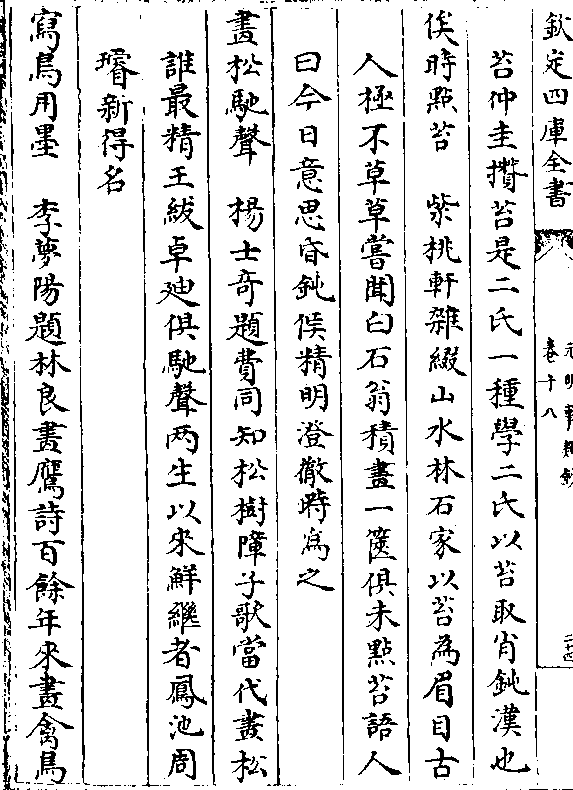 欽定四庫全書
元明事類鈔
卷十八
二十四
苔仲圭攢苔是二氏一種學二氏以苔取肖鈍漢也
俟時點苔　紫桃軒雜綴山水林石家以苔為眉目古
人極不草草嘗聞白石翁積畫一篋俱未點苔語人
曰今日意思昏鈍俟精明澄徹時為之
畫松馳聲　楊士奇題費同知松樹障子歌當代畫松
誰最精王紱卓廸俱馳聲两生以來鮮繼者鳳池周
璿新得名
寫鳥用墨　李夢陽題林良畫鷹詩百餘年來畫禽鳥